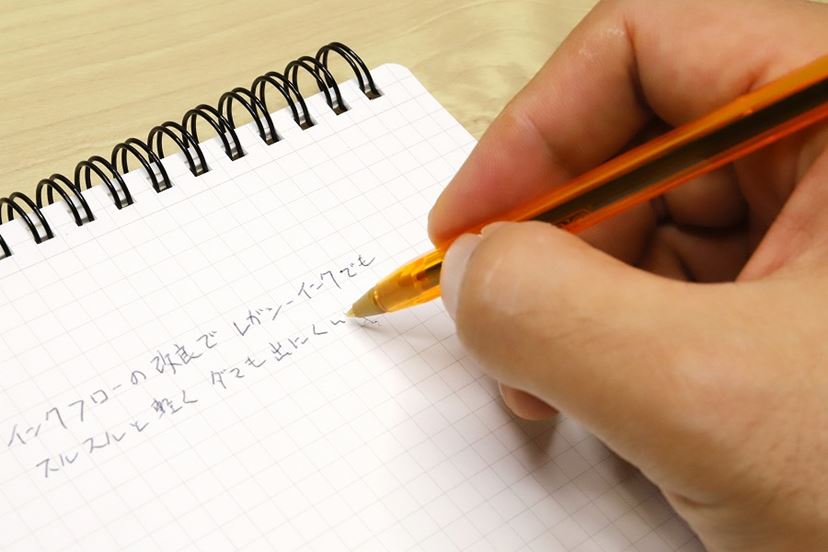 インクフローの改良で レガシーインクでも
スルスルと軽く ダマも出にくい